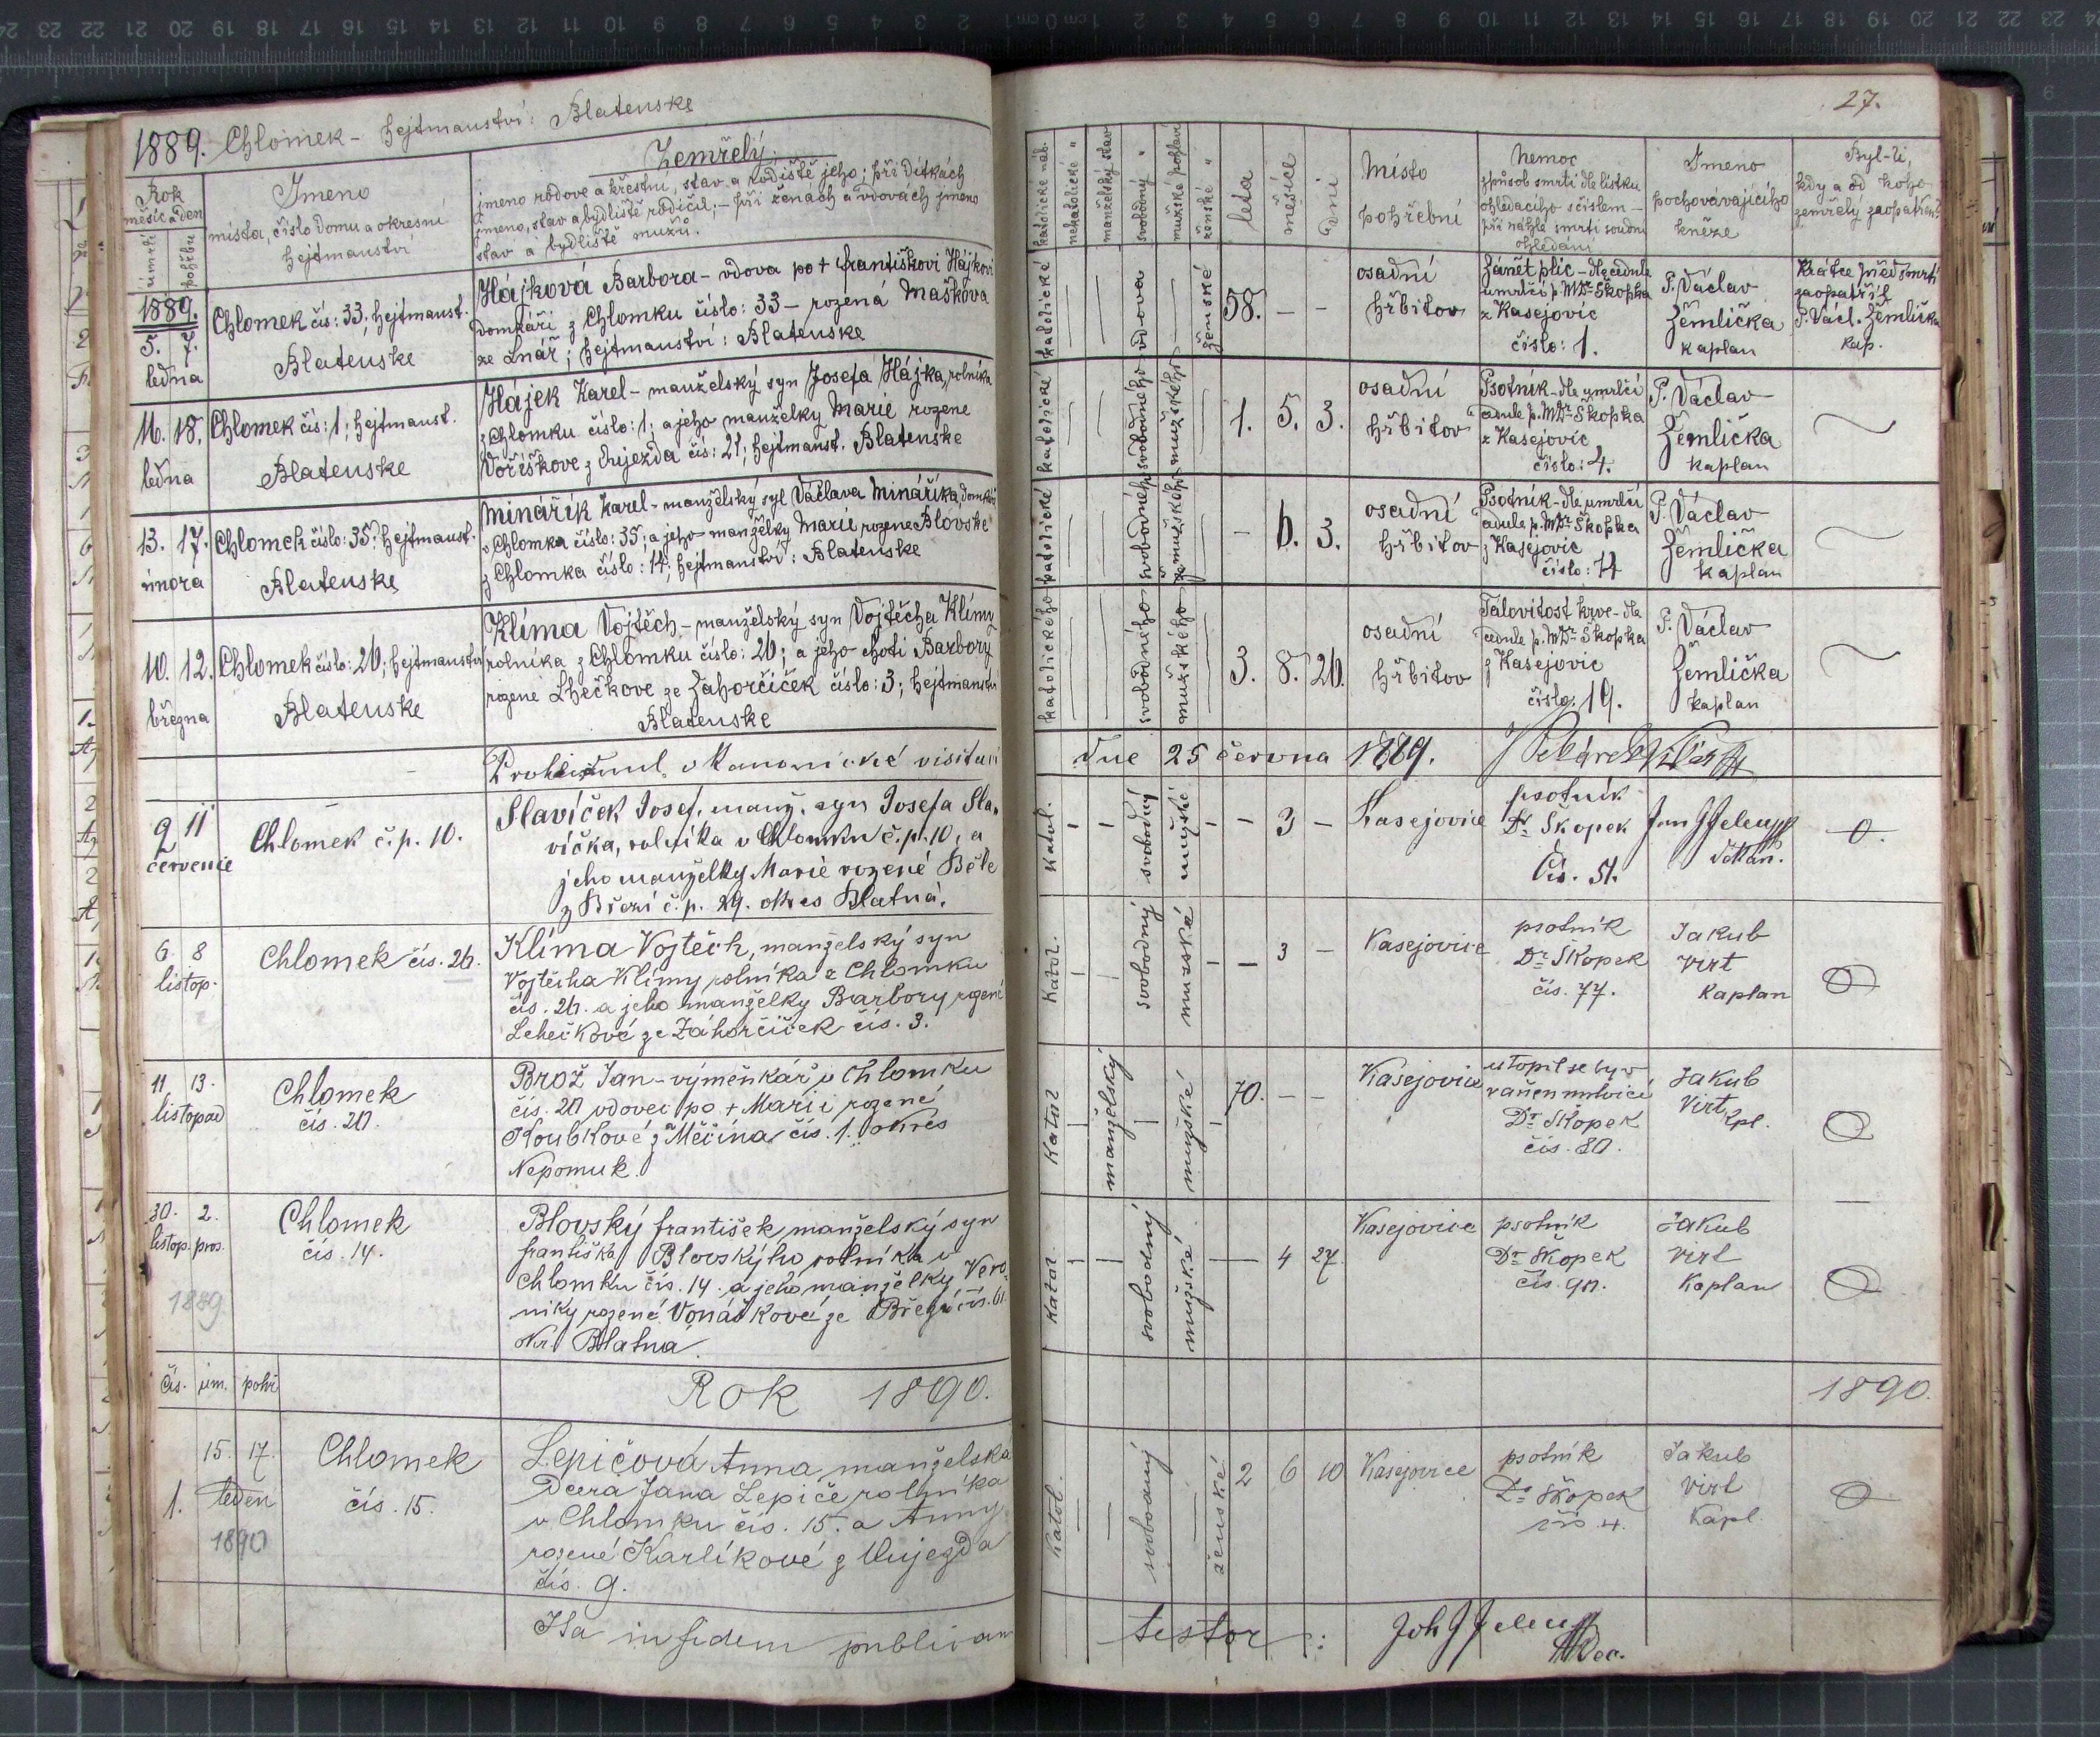 1889. Chlomek - hejtmanství: Blatenske
Rok
měsíc a den
úmrtí
pohřbu
Jmeno
místa, číslo domu a okresní
hejtmanství
Zemřelý.
jmeno rodove a křestní, stav a rodiště jeho; při dítkách
jmeno, stav a bydliště rodičů; - při ženách a vdovách jmeno
stav a bydliště mužů.
1889.
5. 7.
ledna
Chlomek čís: 33; hejtmanst.
Blatenske
Hájková Barbora - vdova po + františkovi Hájkovi
domkáři z Chlomku číslo: 33 - rozená Maškova
ze Lnář; hejtmanství: Blatenske
16. 18.
ledna
Chlomek čís: 1; hejtmanst.
Blatenske
Hájek Karel - manželský syn Josefa Hájka, rolníka
z Chlomku číslo: 1; a jeho manželky Marie rozene
Voříškove z Aujezda čís: 21; hejtmanst. Blatenske
13. 17.
února
Chlomek číslo: 35; hejtmanst.
Blatenske
Minářík Karel - manželský syl Václava Mináříka, domkáře
v Chlomka číslo: 35; a jeho manželky Marie rozene Blovske
z Chlomka číslo: 14; hejtmanství: Blatenske
10. 12.
března
Chlomek číslo: 26; hejtmanství
Blatenske
Klíma Vojtěch - manželský syn Vojtěcha Klímy
rolníka z Chlomku číslo: 26; a jeho choti Barbory
rozené Lhečkove ze Zahorčiček číslo: 3; hejtmanství
Blatenske
Prohlédnul v kanonické visitaci
9 11
červenec
Chlomek č.p. 10.
Slavíček Josef, manž. syn Josefa Sla-
víčka, rolníka v Chlomku č.p. 10; a
jeho manželky Marie rozené Běle
z Březí č.p. 29. okres Blatná.
6. 8
listop.
Chlomek čís. 26.
Klíma Vojtěch, manželský syn
Vojtěcha Klímy rolníka z Chlomku
čís. 26. a jeho manželky Barbory rozené
Lehečkové ze Záhorčiček čís. 3.
11. 13.
listopad
Chlomek
čís. 20.
Brož Jan - výměnkář v Chlomku
čís. 20 vdovec po + Marii rozené
Koubkové z Měčína čís. 1. okres
Nepomuk.
30. 2.
listop. pros.
1889
Chlomek
čís. 14.
Blovský františek manželský syn
františka Blovskýho rolníka v
Chlomku čís. 14. a jeho manželky Vero-
niky rozené Vonáškové ze Březí čís. 61.
okr. Blatná.
čís. úm. pohř
Rok 1890.
1.
15. 17.
leden
1890
Chlomek
čís. 15.
Lepičová Anna manželská
Dcera Jana Lepiče rolníka
v Chlomku čís. 15. a Anny
rozené Karlíkové z Oujezda
čís. 9.
Ita in fidem publicam
27.
katolické náb.
nekatolické "
manželský stav
svobodný "
mužské pohlaví
ženské "
leta
měsíce
dni
Místo
pohřební
Nemoc
způsob smrti dle lístku
ohledacího s číslem -
při náhlé smrti soudní
ohledaní
Jmeno
pochovávajícího
kněze
Byl-li,
kdy a od koho
zemřelý zaopatřen?
katolické
vdova
ženské
58. - -
osadní
hřbitov
Zánět plic - dle cedule
umrlčí p. MDr Škopka
z Kasejovic
číslo: 1.
P. Václav
Žemlička
kaplan
Krátce před smrtí
zaopatřil
P. Vacl. Žemlička
kap.
katolické
svobodného
mužského
1. 5. 3.
osadní
hřbitov
Psotník - dle umrlčí
cedule p. MDr Škopka
z Kasejovic
číslo: 4.
P. Václav
Žemlička
kaplan
katolické
svobodného
mužského
- 6. 3.
osadní
hřbitov
Psotník - dle umrlčí
cedule p. MDr Škopka
z Kasejovic
číslo: 14
P. Václav
Žemlička
kaplan
katolického
svobodného
mužského
3. 8. 26.
osadní
hřbitov
Jalovitost krve - dle
cedule p. MDr Škopka
z Kasejovic
číslo: 19.
P. Václav
Žemlička
kaplan
dne 25 června 1889.
Katol.
svobodný
mužské
- 3 -
Kasejovice
psotník
Dr Škopek
Čís. 51.
Jan J Jelen
děkan.
0.
Katol.
svobodný
mužské
- 3 -
Kasejovice
psotník
Dr Škopek
čís. 77.
Jakub
Virt
Kaplan
Katol
manželský
mužské
70. - -
Kasejovice
utopil se byv
raněn mrtvicí
Dr Škopek
čís. 80.
Jakub
Virt
kpl.
Katol.
svobodný
mužské
- 4 27.
Kasejovice
psotník
Dr Škopek
čís. 90.
Jakub
Virt
Kaplan
1890.
Katol.
svobodný
ženské
2 6 10
Kasejovice
psotník
Dr Škopek
čís 4.
Jakub
Virt
Kapl
testor:
Joh J Jelen
Dec.